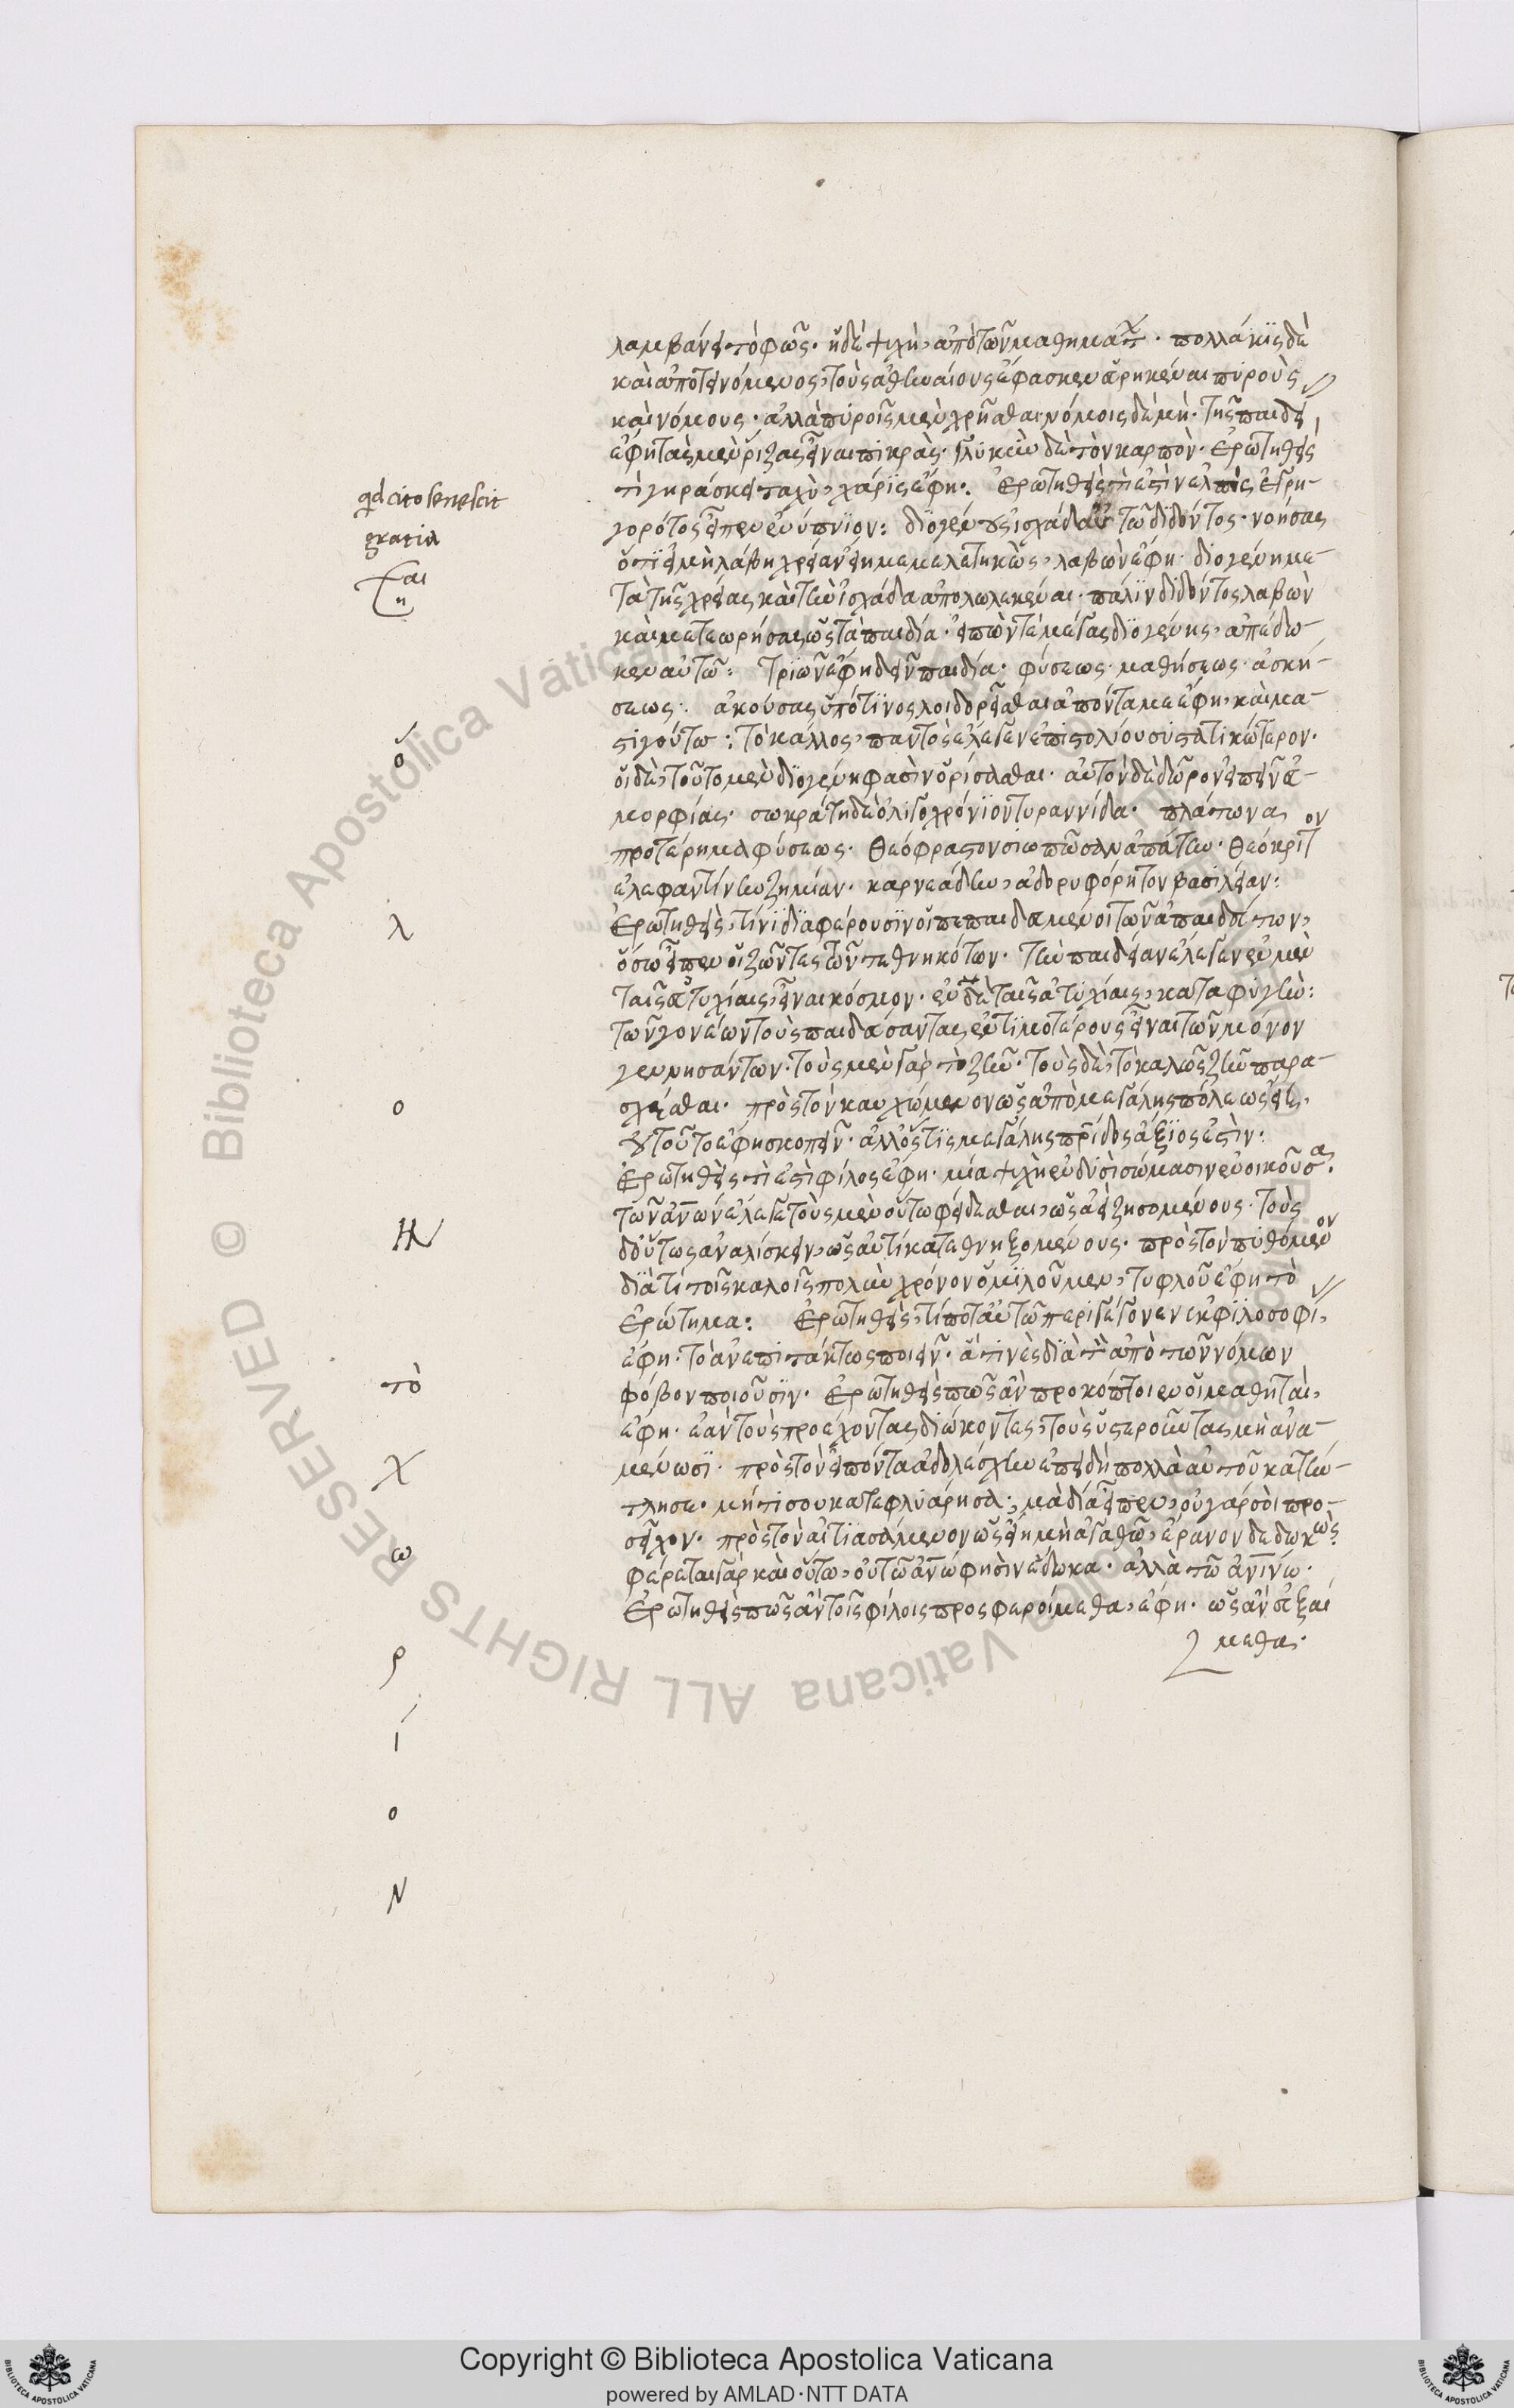 λαμβάνει τὸ φῶς· ἡ δὲ ψυχὴ, ἀπὸ τῶν μαθημάτ. πολλάκις δὲ
καὶ ἀποτεινόμενος, τοὺς ἀθηναίους ἔφασκεν εὑρηκέναι πυροὺς
καὶ νόμους· ἀλλὰ πυροῖς μὲν χρῆσθαι νόμοις δὲ μή. τῆς παιδεί
ἔφη τὰς μὲν ῥίζας εἶναι πικρὰς· γλυκὺν δὲ τὸν καρπόν. ἐρωτηθεὶς
τί γηράσκει ταχὺ, χάρις ἔφη. ἐρωτηθεὶς τί ἐστιν ἐλπὶς ἐγρη-
γορότος εἶπεν ἐνύπνιον: διογένους ἰσχάδα αὐτῶ διδόντος· νοήσας
ὅτι εἰ μὴ λάβη χρείαν εἴη μεμελετηκὼς, λαβὼν ἔφη· διογένη με-
τὰ τῆς χρείας καὶ τὴν ἰσχάδα ἀπολωλεκέναι· πάλιν διδόντος λαβὼν
καὶ μετεωρήσας ὡς τὰ παιδία· εἰπών τε μέγας διογένης, ἀπέδω-
κεν αὐτῶ: τριῶν ἔφη δεῖν παιδία· φύσεως· μαθήσεως· ἀσκή-
σεως:. ἀκούσας ὑπό τινος λοιδορεῖσθαι ἀπόντα με ἔφη, καὶ μα-
στιγούτω: τὸ κάλλος, παντὸς ἔλεγεν ἐπιστολίου συστατικώτερον·
οἱ δὲ, τοῦτο μὲν διογένη φασὶν ὁρίσασθαι· αὐτὸν δὲ δῶρον εἰπεῖν εὐ-
μορφίας· σωκράτη δὲ ὀλιγοχρόνιον τυραννίδα. πλάτωνα
προτέρημα φύσεως· θεόφραστον σιωπῶσαν ἀπάτην. θεόκριτον
ἐλεφαντίνην ζημίαν. καρνεάδην, ἀδορυφόρητον βασιλείαν:
ἐρωτηθεὶς, τίνι διαφέρουσιν οἱ πεπαιδευμένοι τῶν ἀπαιδεύτων,
ὅσω εἶπεν οἱ ζῶντες τῶν τεθνηκότων. τὴν παιδείαν ἔλεγεν ἐν μὲν
ταῖς εὐτυχίαις, εἶναι κόσμον· ἐν δὲ ταῖς ἀτυχίαις, καταφυγὴν:
τῶν γονέων τοὺς παιδεύσαντας ἐντιμοτέρους εἶναι τῶν μόνον
γεννησάντων. τοὺς μὲν γὰρ τὸ ζῆν· τοὺς δὲ, τὸ καλῶς ζῆν παρα-
σχέσθαι. πρὸς τὸν καυχώμενον ὡς ἀπὸ μεγάλης πόλεως εἴη,
οὐ τοῦτο ἔφη σκοπεῖν· ἀλλ' ὅστις μεγάλης πρίδος ἄξιός ἐστιν:
ἐρωτηθεὶς τί ἐστὶ φίλος ἔφη· μία ψυχὴ ἐν δυσὶ σώμασιν ἐνοικοῦσα.
τῶν ἀνων ἔλεγε τοὺς μὲν οὕτω φείδεσθαι, ὡς ἀεὶ ζησομένους· τοὺς
δ' οὕτως ἀναλίσκειν, ὡς αὐτίκα τεθνηξομένους. πρὸς τὸν πυθόμενον
διὰ τί τοῖς καλοῖς πολὺν χρόνον ὁμιλοῦμεν, τυφλοῦ ἔφη τὸ
ἐρώτημα: ἐρωτηθεὶς, τί ποτ' αὐτῶ περιγέγονεν ἐκ φιλοσοφί,
ἔφη· τὸ ἀνεπιτάκτως ποιεῖν· ἅ τινες διὰ τὸν ἀπὸ τῶν νόμων
φόβον ποιοῦσιν. ἐρωτηθεὶς πῶς ἂν προκόπτοιεν οἱ μαθηταὶ,
ἔφη· ἐὰν τοὺς προέχοντας διώκοντες, τοὺς ὑστεροῦντας μὴ ἀνα-
μένωσι. πρὸς τὸν εἰπόντα ἀδολέσχην ἐπειδὴ πολλὰ αὐτοῦ κατήν-
τλησε· μή τι σου κατεφλυάρησα; μὰ δία εἶπεν, οὐ γάρ σοι προ-
σεῖχον. πρὸς τὸν αἰτιασάμενον ὡς εἴη μὴ ἀγαθῶ, ἔρανον δεδωκὼς.
φέρεται γὰρ καὶ οὕτω, οὐ τῶ ἀνω φησὶν ἔδωκα· ἀλλὰ τῶ ἀνινω.
ἐρωτηθεὶς πῶς ἂν τοῖς φίλοις προσφεροίμεθα, ἔφη· ὡς ἂν εὐξαί
μεθα.
qd cito senescit
gratia
αι
η
ὅ
λ
ο
Ν
τὸ
χ
ω
ρ
ί
ο
Ν
© Biblioteca Apostolica Vaticana ALL RIGHTS RESERVED
Copyright © Biblioteca Apostolica Vaticana
powered by AMLAD·NTT DATA
BIBLIOTECA APOSTOLICA VATICANA
BIBLIOTECA APOSTOLICA VATICANA